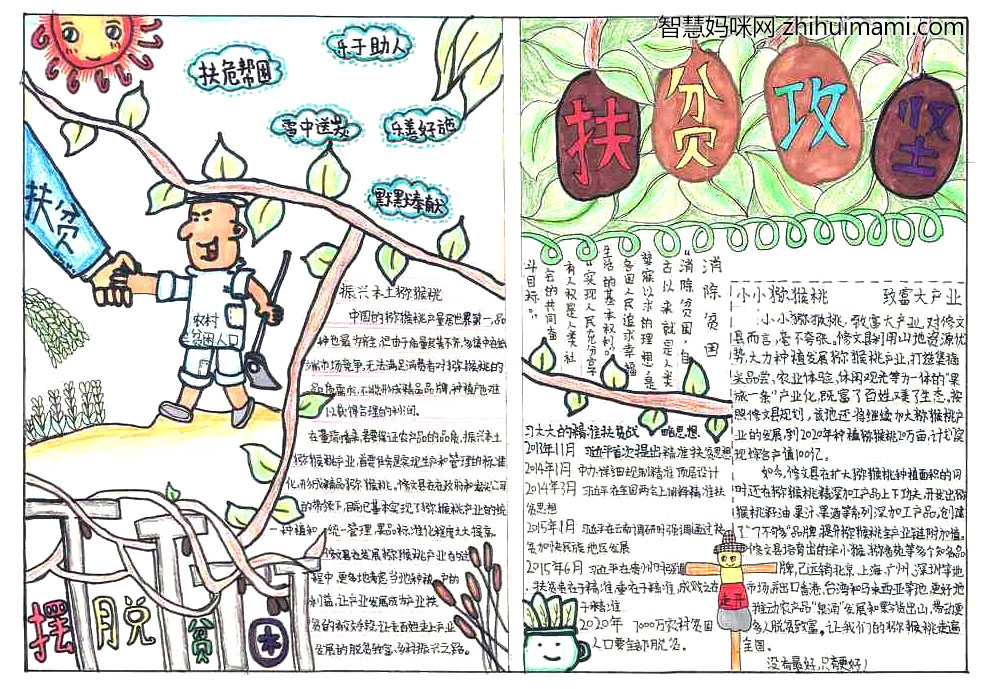 智慧妈咪网 zhihuimami.com
乐于助人
扶危帮困
雪中送炭
乐善好施
默默奉献
扶贫
农村
贫困人口
摆脱贫困
振兴本土猕猴桃
中国的猕猴桃产量居世界第一,品
无法满足消费者对猕猴桃的
以获得合理的利润。
要保证农产品的品质,振兴本土
猕猴桃产业,首要任务是实现生产和管理的标准
化,形成精品猕猴桃。修文县在政府和龙头公司
的带领下,目前已基本实现了猕猴桃产业的统
一种植和统一管理,果品标准化程度大大提高。
在发展猕猴桃产业的过
程中,更多地考虑当地种植户的
利益,让产业发展成为产业扶
贫的有效手段,让老百姓走上产业
发展的脱贫致富、乡村振兴之路。
扶贫攻坚
消除贫困
“消除贫困,自
古以来就是人类
梦寐以求的理想,是
各国人民追求幸福
生活的基本权利。”
“实现人民充分享
有人权是人类社
会的共同奋
斗目标。”
习大大的精准扶贫战略思想
2013年11月 习近平首次提出精准扶贫思想
2014年1月 中办详细规制精准顶层设计
2014年3月 习近平在全国两会上讲解精准扶
贫思想
2015年1月 习近平云南调研时强调通过扶
贫加快民族地区发展
2015年6月 习近平在贵州时强调
扶贫贵在于精准,重在于精准,成败之在
于精准
2020年 7000万农村贫困
人口要全部脱贫。
小小猕猴桃 致富大产业
小小猕猴桃,致富大产业,对修文
县而言,毫不夸张。修文县利用山地资源优
势,大力种植发展猕猴桃产业,打造集摘
采品尝、农业体验、休闲观光等为一体的“果
旅一条”产业化,既富了百姓,美了生态。按
照修文县规划,该地还将继续加大猕猴桃产
业的发展,到2020年种植猕猴桃20万亩,计划实
现综合产值100亿。
如今,修文县在扩大猕猴桃种植面积的同
时,还在猕猴桃精深加工产品上下功夫,开发出猕
猴桃籽油、果汁、果酒等系列深加工产品,创建
了“7不够”品牌,提升猕猴桃产业链附加值。
修文县培育出的米小猴、猕香苑等多个知名品
牌,已远销北京、上海、广州、深圳等地
市场,漂出口香港、台湾和马来西亚等地,更好地
推动农产品“泉涌”发展和黔货出山,带动更
多人脱贫致富。让我们的猕猴桃走遍
全国。
没有最好,只有更好!